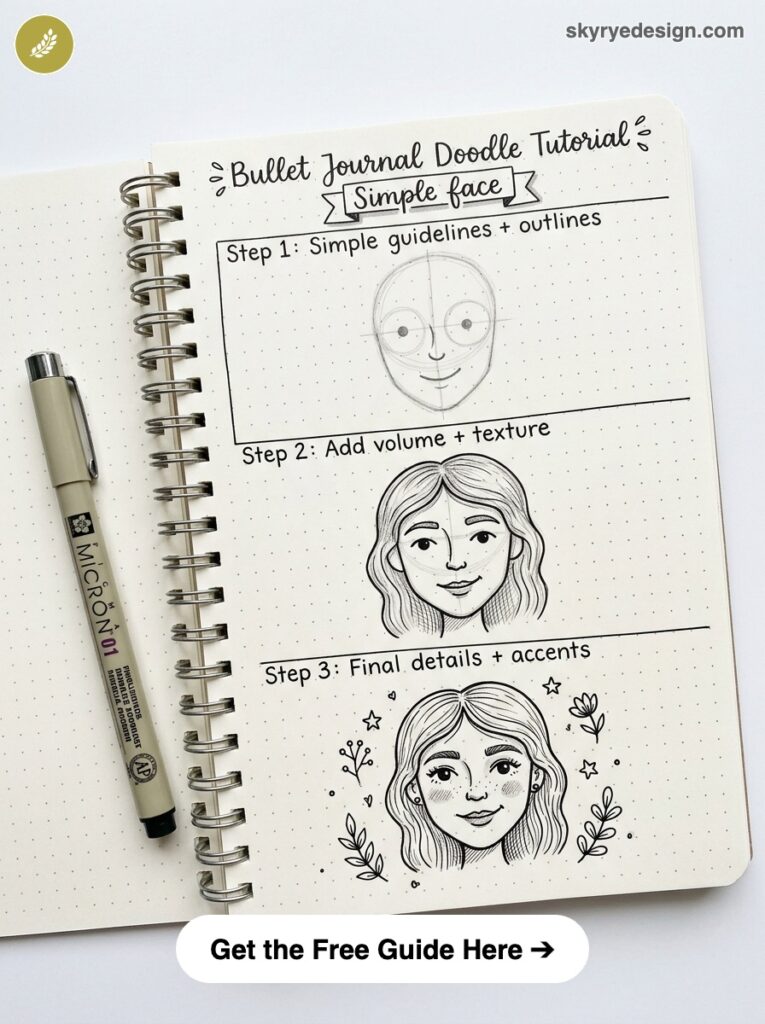 skyryedesign.com
Bullet Journal Doodle Tutorial
Simple face
Step 1: Simple guidelines + outlines
Step 2: Add volume + texture
Step 3: Final details + accents
PIGMA
MICRON 01
AP
Get the Free Guide Here ➔